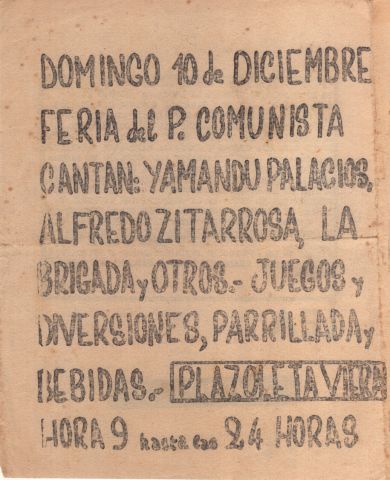 DOMINGO 10 de DICIEMBRE
FERIA del P. COMUNISTA
CANTAN: YAMANDU PALACIOS,
ALFREDO ZITARROSA, LA
BRIGADA y OTROS.- JUEGOS y
DIVERSIONES, PARRILLADA y
BEBIDAS.- PLAZOLETA VIERA
HORA 9 hasta las 24 HORAS